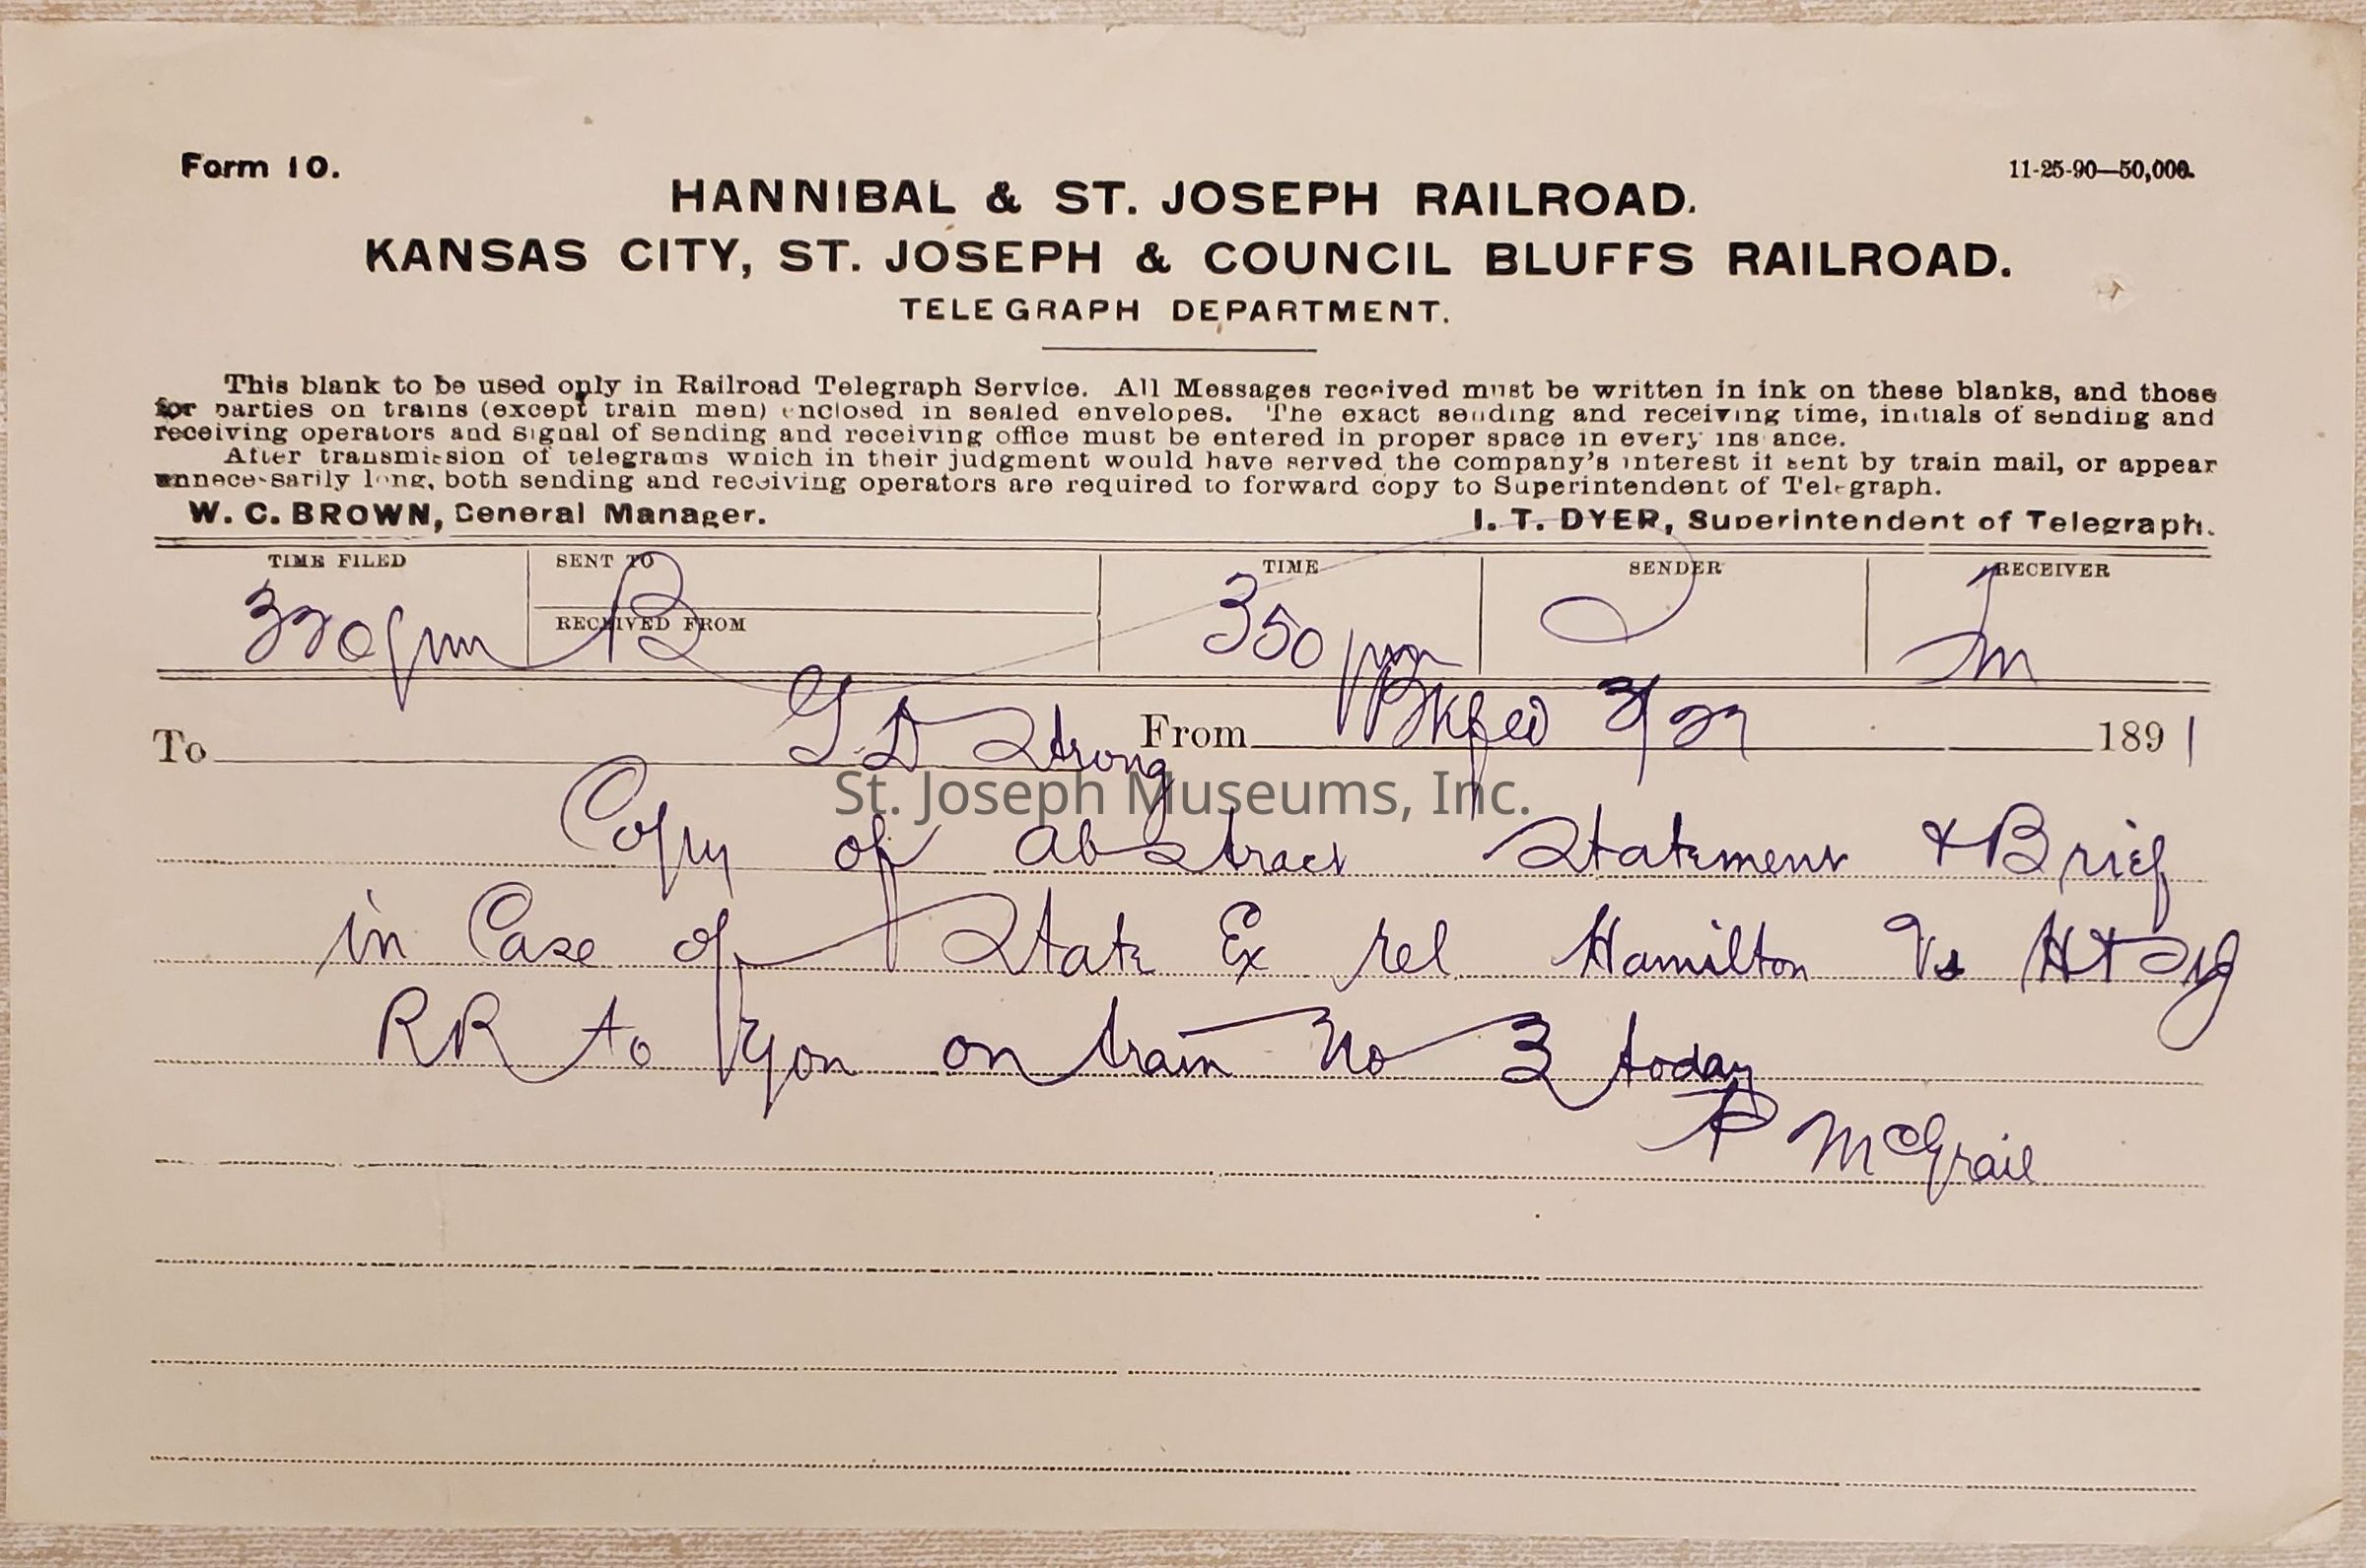 Form 10.
11-25-90—50,000.
HANNIBAL & ST. JOSEPH RAILROAD.
KANSAS CITY, ST. JOSEPH & COUNCIL BLUFFS RAILROAD.
TELEGRAPH DEPARTMENT.
This blank to be used only in Railroad Telegraph Service. All Messages received must be written in ink on these blanks, and those
for parties on trains (except train men) enclosed in sealed envelopes. The exact sending and receiving time, initials of sending and
receiving operators and signal of sending and receiving office must be entered in proper space in every instance.
After transmission of telegrams which in their judgment would have served the company's interest if sent by train mail, or appear
unnecessarily long, both sending and receiving operators are required to forward copy to Superintendent of Telegraph.
W. C. BROWN, General Manager. I. T. DYER, Superintendent of Telegraph.
TIME FILED SENT TO TIME SENDER RECEIVER
RECEIVED FROM
320 pm B 350 pm
To G. D Strong From Bkfed 3/27 1891
St. Joseph Museums, Inc.
Copy of abstract Statement & Brief
in Case of State Ex rel Hamilton Vs H & St J
RR to you on train No 3 today
P McGrail